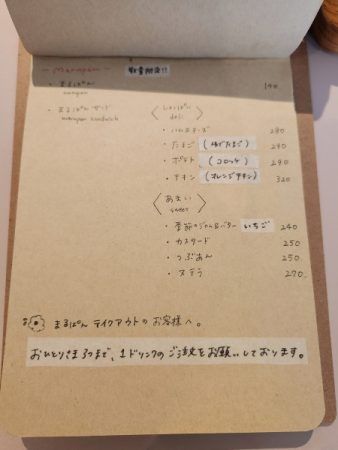 - marupan -
・まるぱん 140
marupan
・まるぱん サンド
marupan sandwich
〈しょっぱい〉
deli
・ハムとチーズ 280
・たまご (ゆでたまご) 290
・ポテト (コロッケ) 290
・チキン (オレンジチキン) 320
〈あまい〉
sweet
・季節のジャム&バター いちご 240
・カスタード 250
・つぶあん 250
270
まるぱん テイクアウトのお客様へ。
おひとりさま3つまで、1ドリンクのご注文をお願いしております。